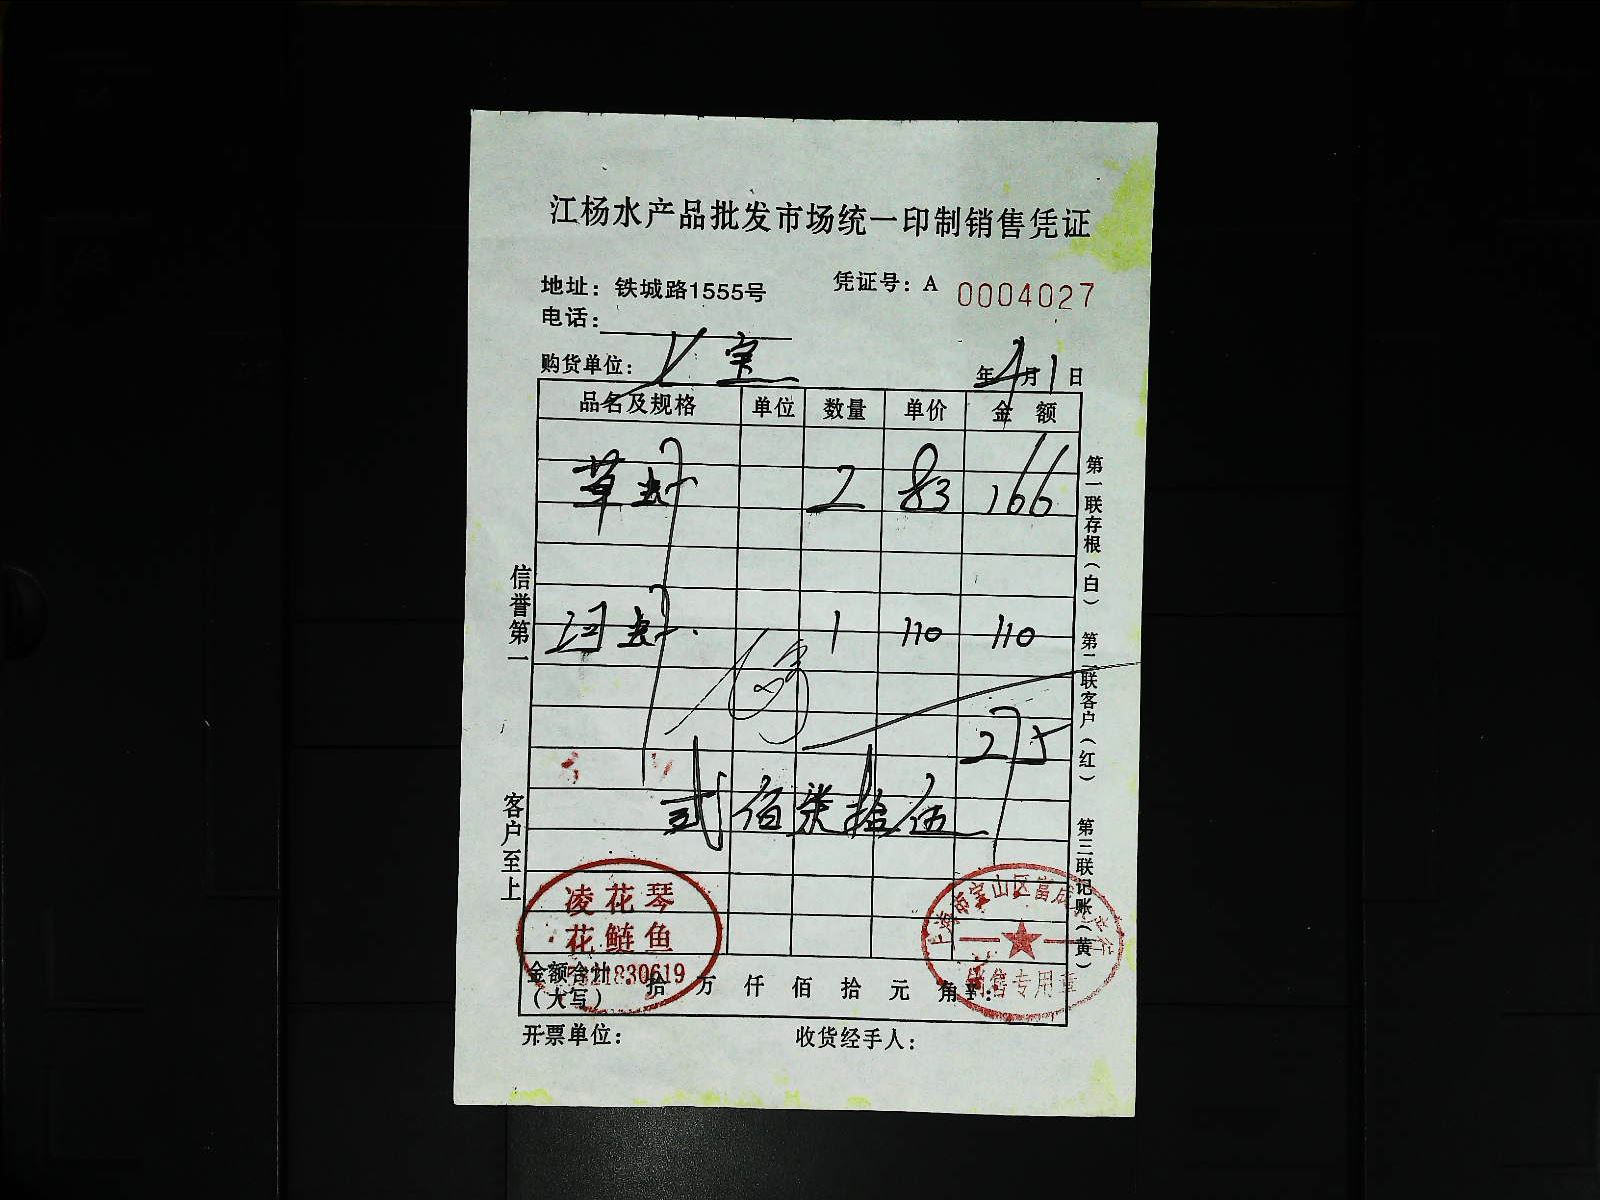 江杨水产品批发市场统一印制销售凭证
地址：铁城路1555号 凭证号：A 0004027
电话：
购货单位： 宝 年 月 1 日
品名及规格 单位 数量 单价 金额
草虾 2 83 166
河虾 1 110 110
275
贰佰柒拾伍
信誉第一
客户至上
第一联存根（白）
第二联客户（红）
第三联记账（黄）
凌花琴
花鲢鱼
上海市宝山区
销售专用章
金额合计（大写） 拾 万 仟 佰 拾 元 角
开票单位： 收货经手人：